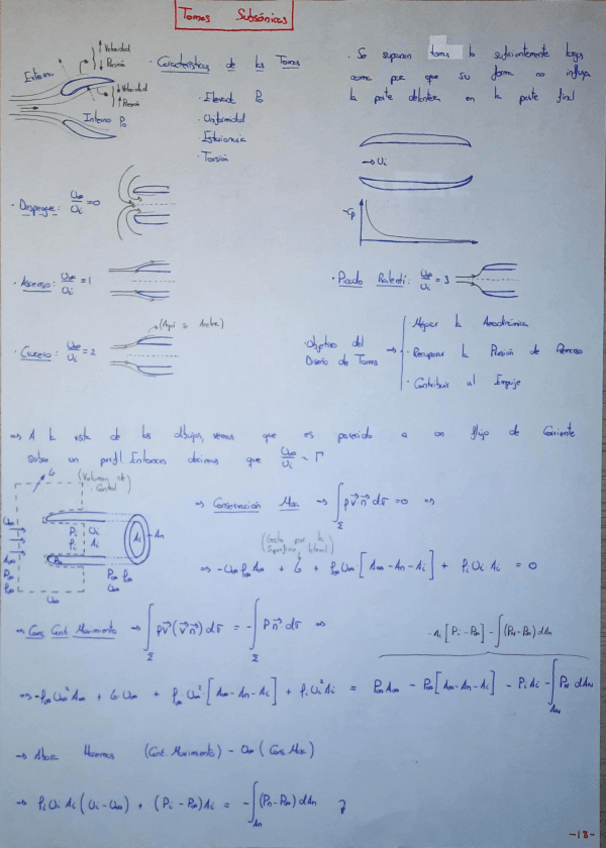 Tomas Subsónicas
↑ Velocidad
↓ Presión
Externo
↓ Velocidad
↑ Presión
Interno P₀
· Características de las Tomas
· Elevada P₀
· Uniformidad
· Estacionaria
· Torsión
· Se suponen tomas lo suficientemente largas
como por que su forma no influya
la parte delantera en la parte final
→ Ui
-Cp
· Despegue: U∞/Ui = 0
· Ascenso: U∞/Ui = 1
· Picado Ralentí: U∞/Ui = 3
(Aquí se Acelera)
· Crucero: U∞/Ui = 2
· Objetivo del
Diseño de Tomas →
· Mejorar la Aerodinámica
· Recuperar la Presión de Remanso
· Contribuir al Empuje
⇒ A la vista de los dibujos, vemos que es parecido a un flujo de Corriente
sobre un perfil. Entonces decimos que U∞/Ui ~ Γ
G (Volumen de
Control)
U∞
A∞
P∞
ρ∞
Pi Ui
ρi Ai
Ai
An
P∞ ρ∞
U∞
U∞
⇒ Conservación Masa ⇒ ∫Σ ρ v⃗ n⃗ dσ = 0 ⇒
(Gasto por la
Superficie lateral)
⇒ -U∞ρ∞A∞ + G + ρ∞U∞[A∞-An-Ai] + ρiUiAi = 0
⇒ Cons. Cant. Movimiento ⇒ ∫Σ ρv⃗(v⃗n⃗)dσ = -∫Σ Pn⃗ dσ ⇒
-Ai[Pi-P∞] - ∫(PN-P∞)dAn
⇒ -ρ∞U∞²A∞ + G·U∞ + ρ∞U∞²[A∞-An-Ai] + ρiUi²Ai = P∞A∞ - P∞[A∞-An-Ai] - PiAi - ∫AN PN dAN
→ Ahora Hacemos (Cant. Movimiento) - U∞ (Cons. Mas.)
→ ρiUiAi(Ui-U∞) + (Pi-P∞)Ai = -∫An (Pn-P∞)dAn
-18-